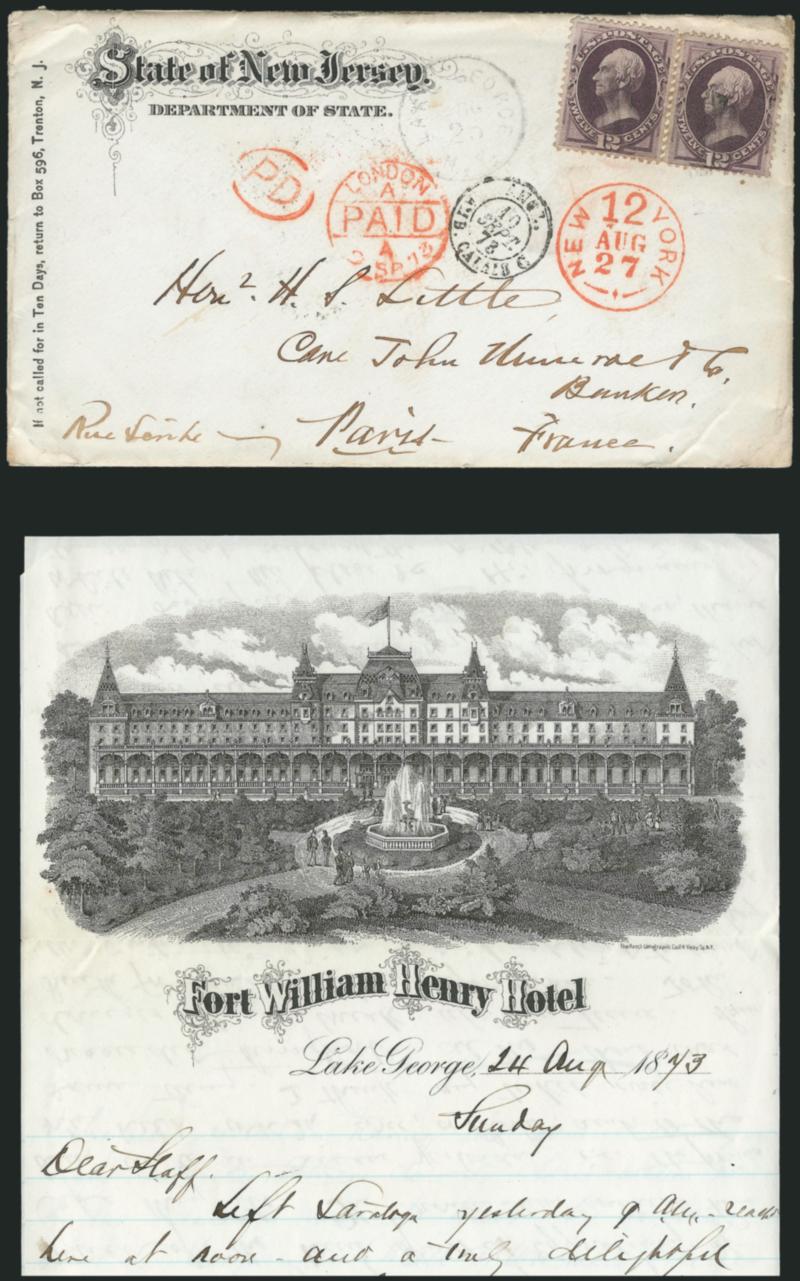 State of New Jersey.
DEPARTMENT OF STATE.
If not called for in Ten Days, return to Box 596, Trenton, N. J.
U.S. POSTAGE
TWELVE 12 CENTS
U.S. POSTAGE
TWELVE 12 CENTS
PD
LONDON
A
PAID
A
SP 73
10
SEPT.
73
CALAIS
NEW YORK
12
AUG
27
Hon. H. S. Little
Care John Munroe & Co.
Banker.
Paris
France.
Rue Scribe
Fort William Henry Hotel
Lake George, 24 Aug 1873
Sunday
Dear Staff.
Left Saratoga yesterday 9 AM. reach
here at noon - and a truly delightful